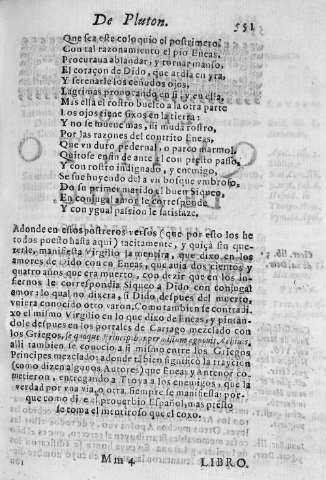 De Pluton. 551
Que sea este coloquio el postrimero.
Con tal razonamiento el pio Eneas,
Procuraua ablandar, y tornar manso,
El coraçon de Dido, que ardia en yra,
Y serenarle los ceñudos ojos,
Lagrimas prouocando en si, y en ella,
Mas ella el rostro buelto a la otra parte
Los ojos tiene fixos en la tierra:
Y no se mueue mas, ni muda rostro,
Por las razones del contrito Eneas,
Que vn duro pedernal, o parco marmol.
Quitose enfin de ante el con presto passo,
Y con rostro indignado, y enemigo,
Se fue huyendo del a vn bosque vmbroso,
Do su primer marido el buen Siqueo
En conjugal amor le corresponde
Y con ygual passion le satisfaze.
Adonde en estos postreros versos (que por esto los he
todos puesto hasta aqui) tacitamente, y quiçà sin que-
rerlo, manifiesta Virgilio la mentira, que dixo en los
amores de Dido con Eneas, que auia dos cientos y
quatro años que era muerto, con dezir que en los In-
fiernos le correspondia Siqueo a Dido con conjugal
amor: lo qual no dixera, si Dido despues del muerto,
vuiera conocido otro varon. Como tambien se contradi-
xo el mismo Virgilio en lo que dixo de Eneas, y pintan-
dole despues en los portales de Cartago mezclado con
los Griegos, se quoque Principibus permixtum agnouit Achiuis,
alli tambien se conocio a si mismo entre los Griegos
Principes mezclado: adonde tambien significò la traycion
(como dizen algunos Autores) que Eneas, y Antenor co-
metieron, entregando a Troya a los enemigos, que la
verdad por vna via, o otra, siempre se manifiesta: por-
que como dize el prouerbio Español, mas presto
se toma el mentiroso que el coxo.
Mm 4 LIBRO.